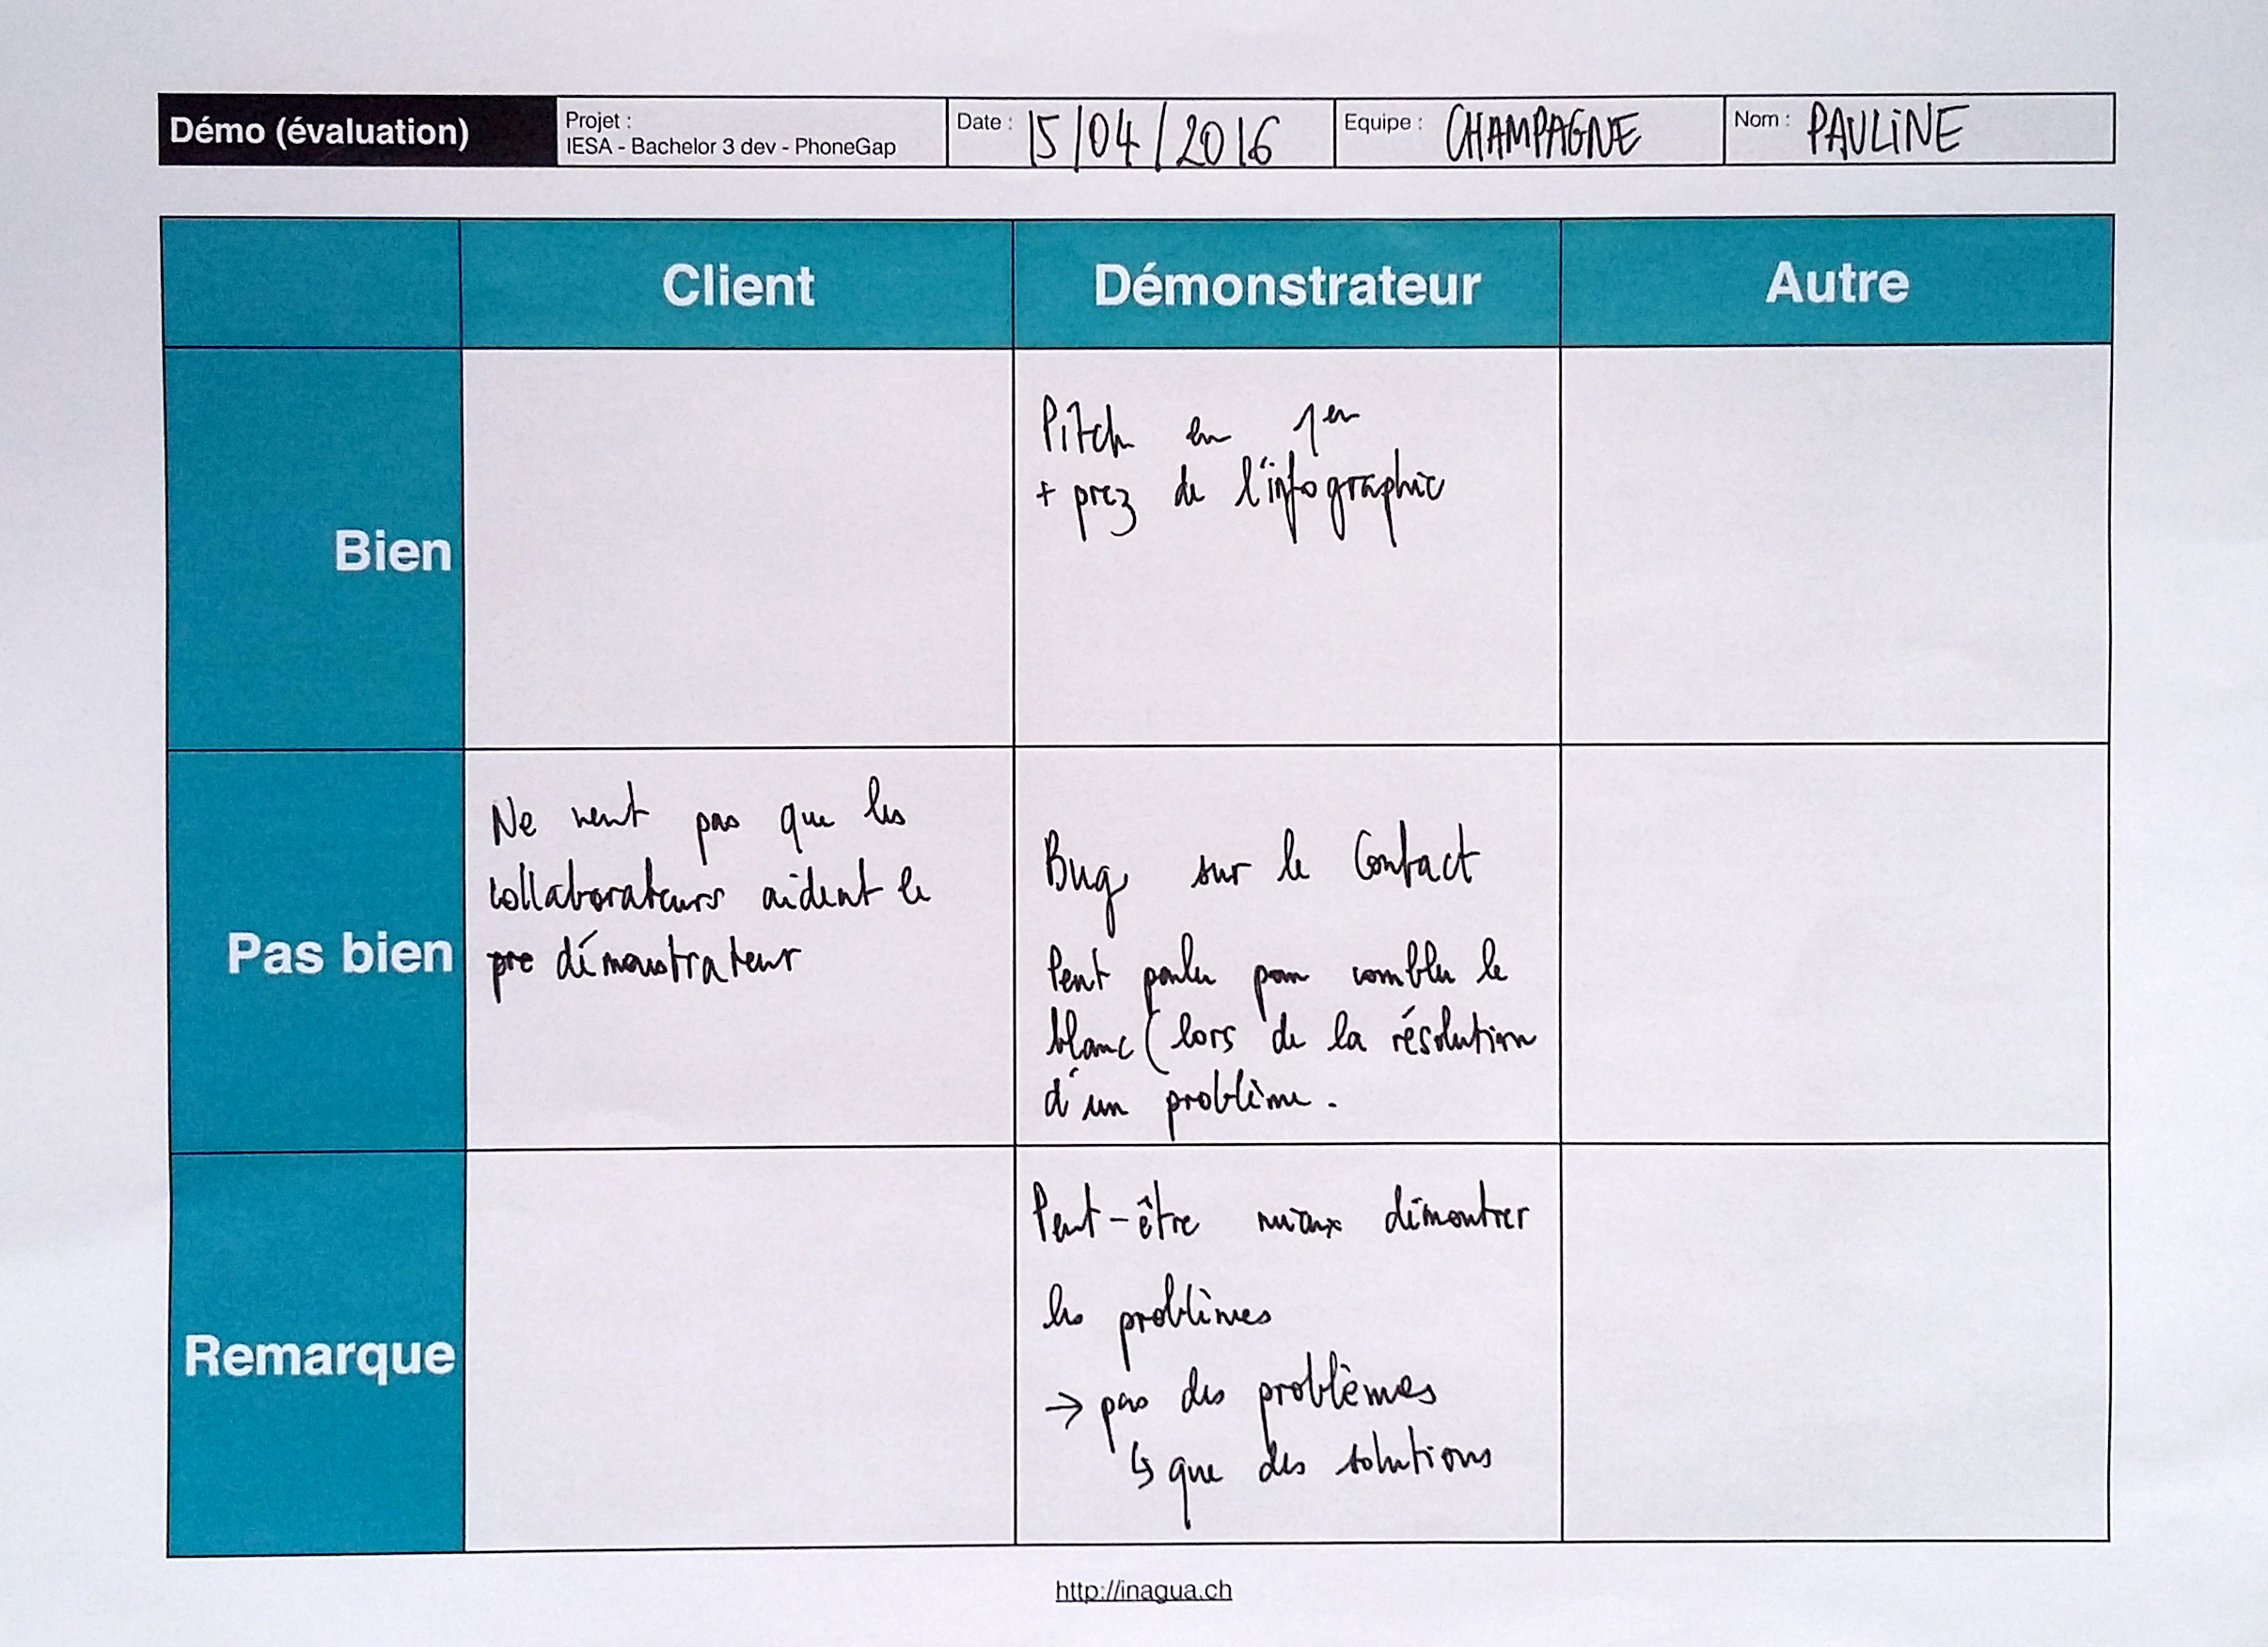 Démo (évaluation)
Projet :
IESA - Bachelor 3 dev - PhoneGap
Date : 15/04/2016
Equipe : CHAMPAGNE
Nom : PAULINE
Client
Démonstrateur
Autre
Bien
Pitch en 1er
+ prez de l'infographie
Pas bien
Ne veut pas que les
collaborateurs aident le
pre démonstrateur
Bug sur le Contact
Peut parler pour combler le
blanc (lors de la résolution
d'un problème.
Remarque
Peut-être mieux démontrer
les problèmes
→ pas des problèmes
↳ que des solutions
http://inagua.ch